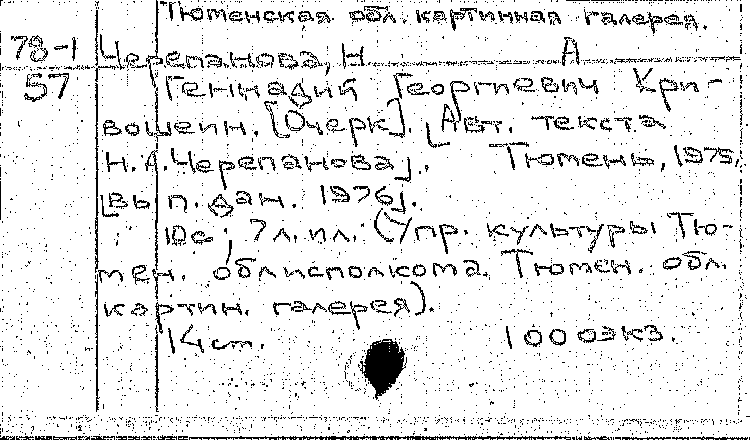 Тюменская обл. картинная галерея.
78-1 Черепанова, Н А
57 Геннадий Георгиевич Кри-
вошеин. [Очерк]. [Авт. текста
Н.А.Черепанова]. Тюмень, 1975,
[вып. дан. 1976].
10с; 7л.ил. (Упр. культуры Тю-
мен. облисполкома. Тюмен. обл.
картин. галерея).
14 cm. 1000экз.